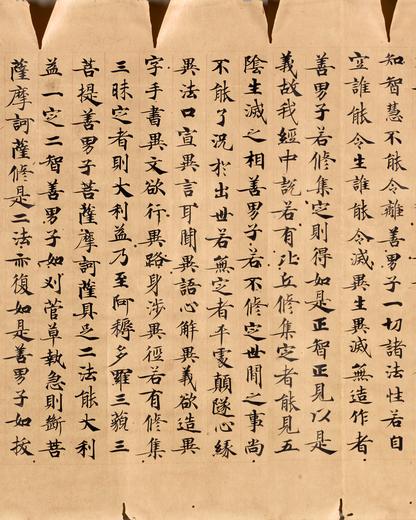 知智慧不能令離善男子一切諸法性若自
空誰能令生誰能令滅異生異滅無造作者
善男子若修集定則得如是正智正見以是
義故我經中說若有比丘修集定者能見五
陰生滅之相善男子若不修定世間之事尚
不能了況於出世若無定者平處顛墜心緣
異法口宣異言耳聞異語心解異義欲造異
字手書異文欲行異路身涉異徑若有修集
三昧定者則大利益乃至阿耨多羅三藐三
菩提善男子菩薩摩訶薩具足二法能大利
益一定二智善男子如刈菅草執急則斷菩
薩摩訶薩修是二法亦復如是善男子如拔